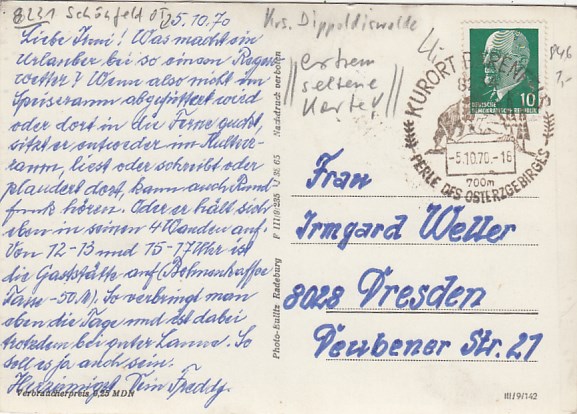 8231 Schönfeld OT
5.10.70
Liebe Irmi! Was macht ein
Urlauber bei so einem Regen-
wetter? Wenn also nicht im
Speiseraum abgefüttert wird
oder dort in die Ferne guckt,
sitzt er entweder im Kultur-
raum, liest oder schreibt oder
plaudert dort, kann auch Rund
funk hören. Oder er hält sich
eben in seinen 4 Wänden auf.
Von 12-13 und 15-17 Uhr ist
die Gaststätte auf (Bohnenkaffee
Tasse -50 M). So verbringt man
eben die Tage und ist dabei
trotzdem bei guter Laune. So
soll es ja auch sein.
Herzinnigst Dein Freddy
Verbraucherpreis 0,25 MDN
Photo-Kulitz Radeburg F III/9/235 V 28 65 Nachdruck verboten
Krs. Dippoldiswalde
extrem
seltene
Karte!
P46
1,-
10
DEUTSCHE
DEMOKRATISCHE REPUBLIK
KURORT BÄRENFELS
-5.10.70.-16
700m
PERLE DES OSTERZGEBIRGES
Frau
Irmgard Weller
8028 Dresden
Deubener Str. 21
III/9/142